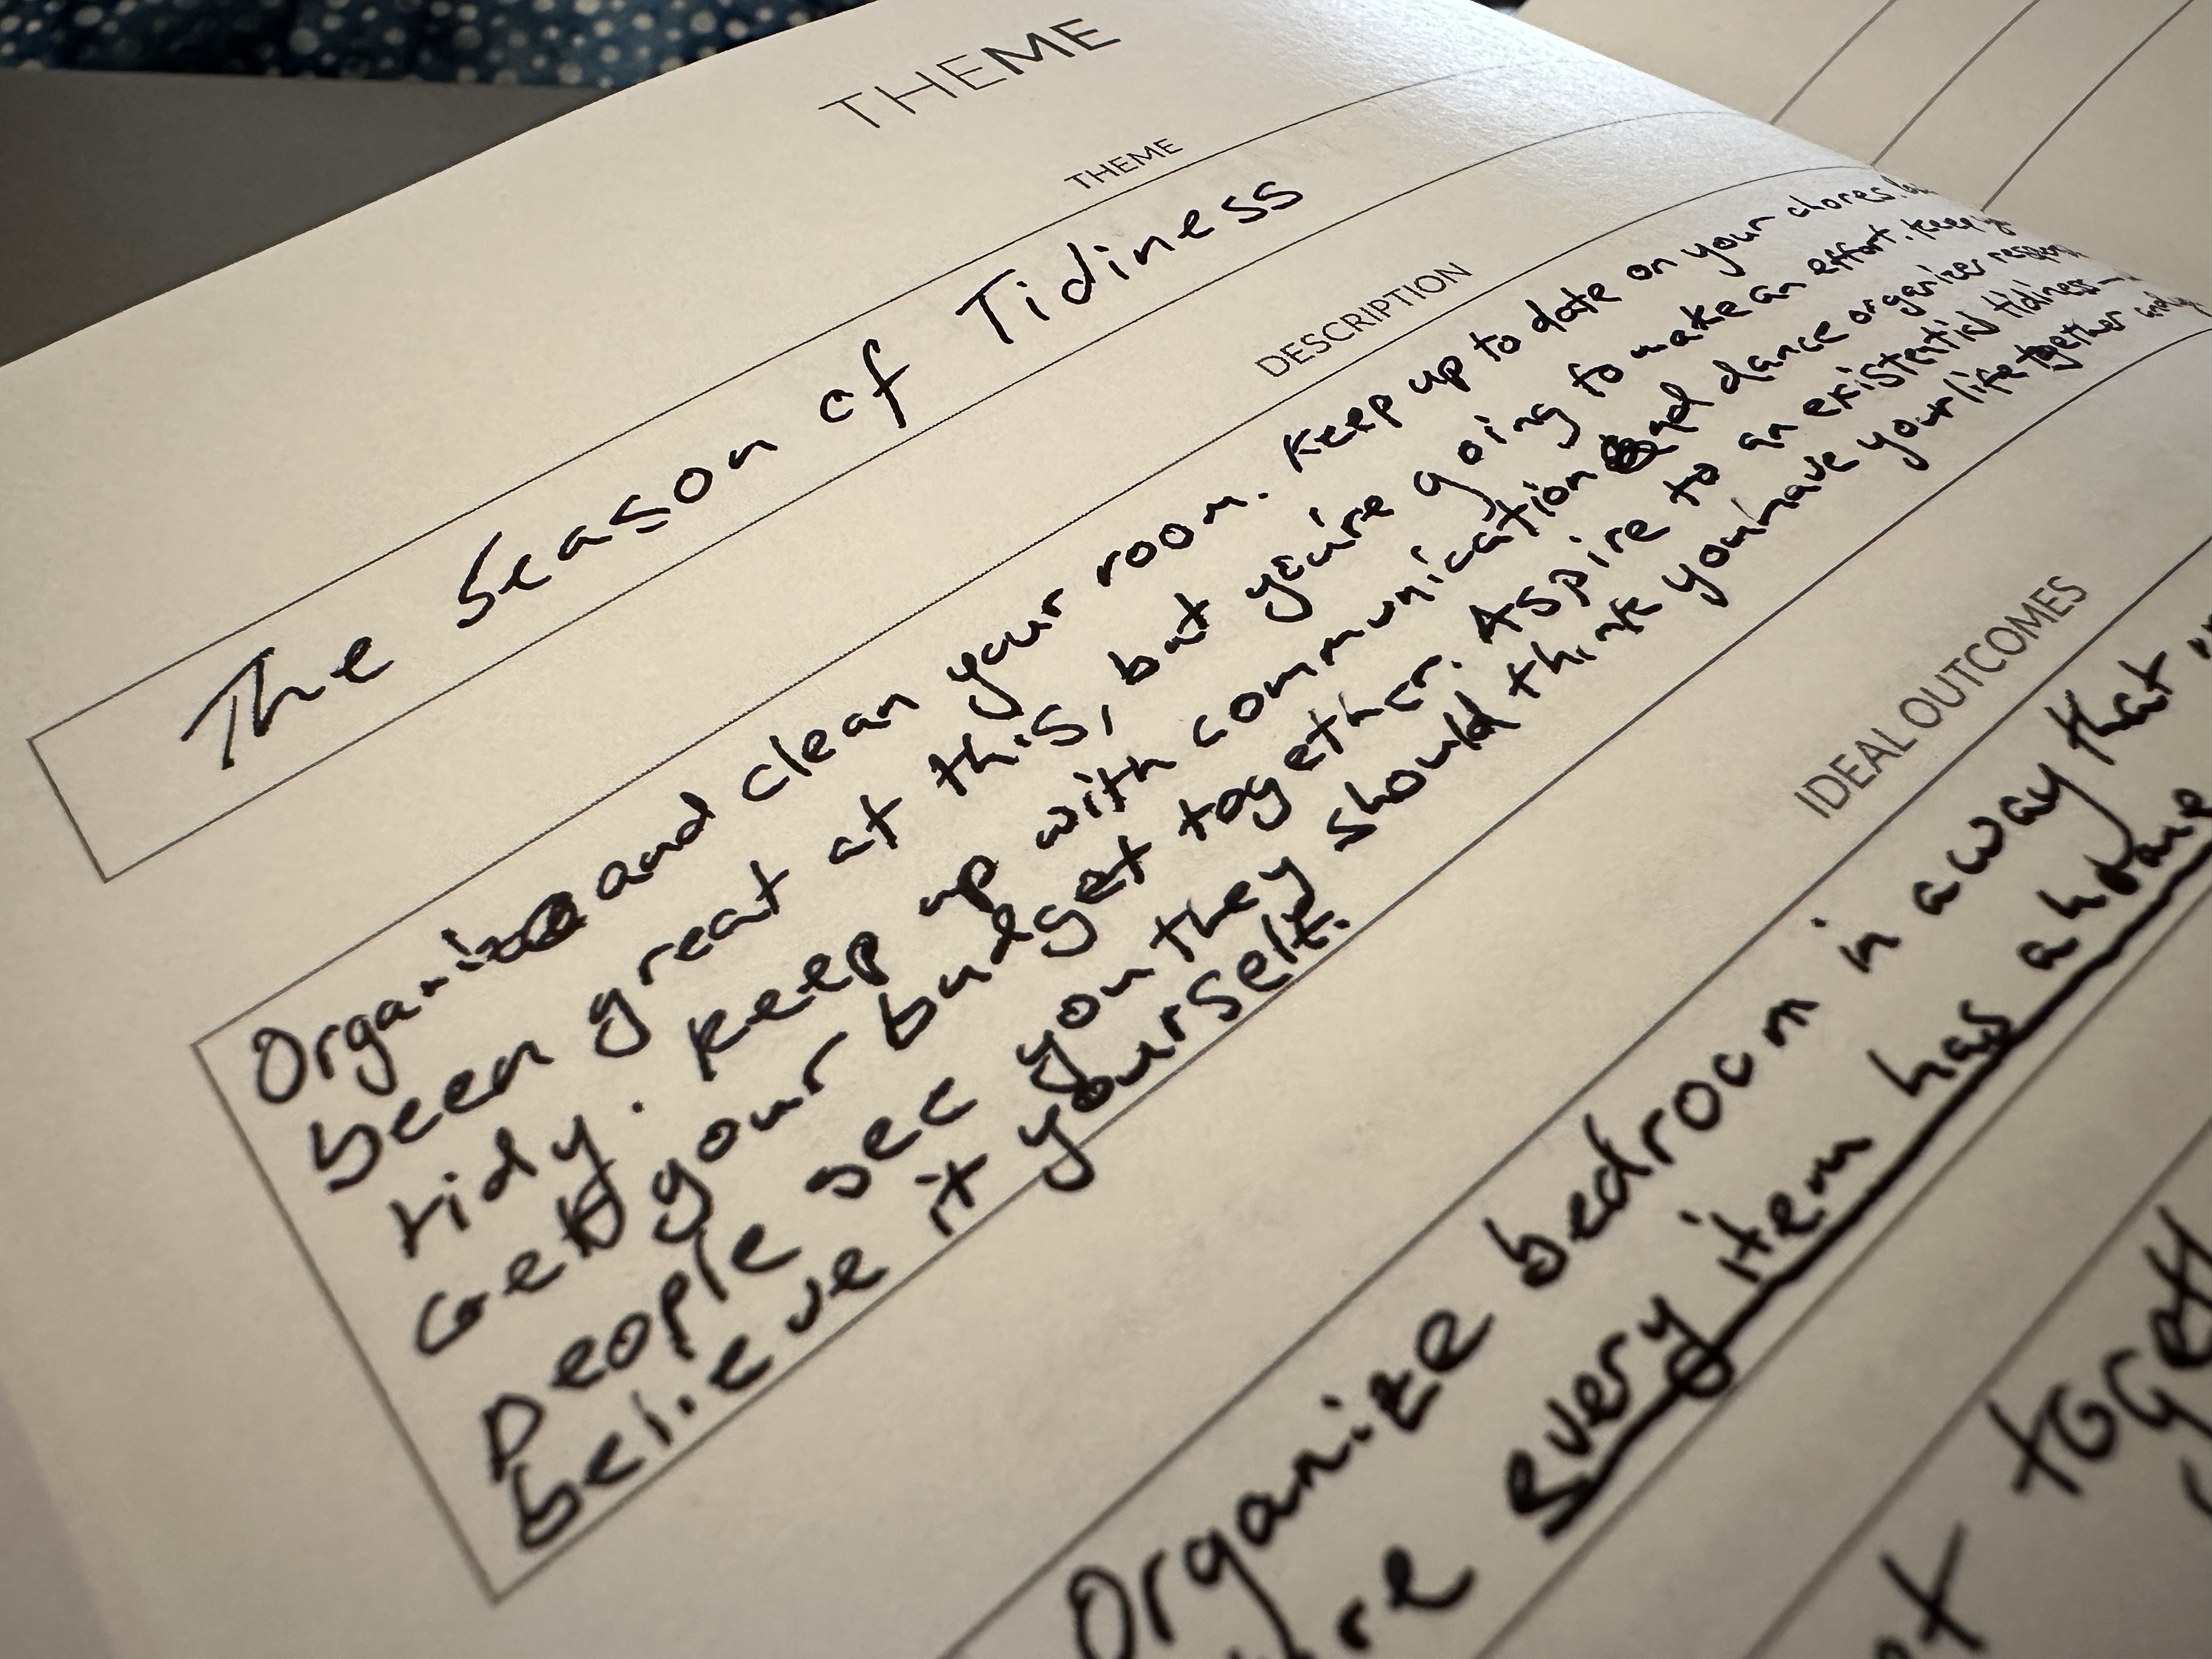 THEME
THEME
The Season of Tidiness
DESCRIPTION
Organize and clean your room. Keep up to date on your chores.
been great at this, but you're going to make an effort. Keep
tidy. Keep up with communication and dance organizer
Get your budget together. Aspire to an existential tidiness—
people see you they should think you have your life together and
believe it yourself.
IDEAL OUTCOMES
Organize bedroom in a way that
every item has a home